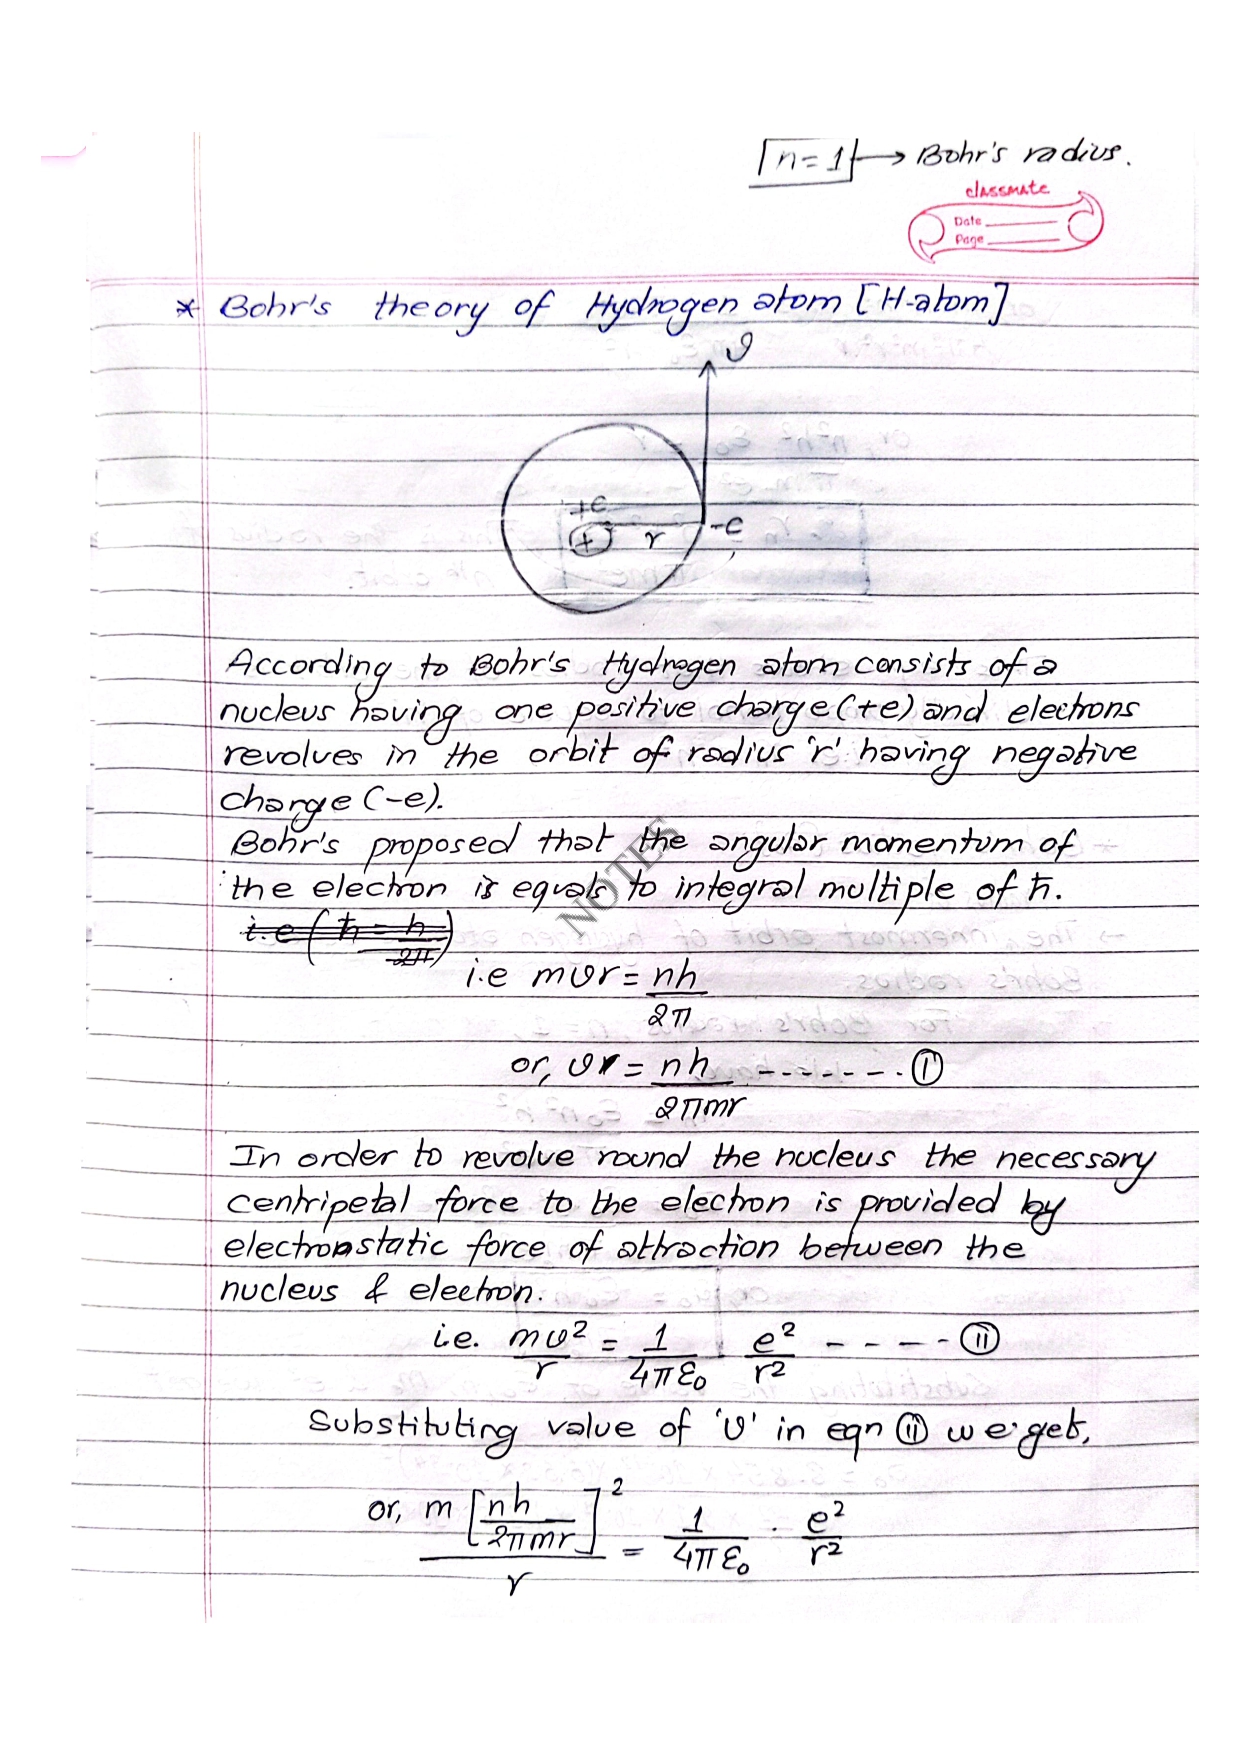 n=1 → Bohr's radius.
classmate
Date
Page
* Bohr's theory of Hydrogen atom [H-atom]
v
+e
+ r -e
According to Bohr's Hydrogen atom consists of a
nucleus having one positive charge (+e) and electrons
revolves in the orbit of radius 'r' having negative
charge (-e).
Bohr's proposed that the angular momentum of
the electron is equals to integral multiple of ħ.
i.e (ħ = h/2π)
i.e mvr = nh/2π
or, v = nh/2πmr ------- (i)
In order to revolve round the nucleus the necessary
centripetal force to the electron is provided by
electronstatic force of attraction between the
nucleus & electron.
i.e. mv²/r = 1/4πε₀ . e²/r² ---- (ii)
Substituting value of 'v' in eqn (ii) we get,
or, m [nh/2πmr]²/r = 1/4πε₀ . e²/r²
NOTES